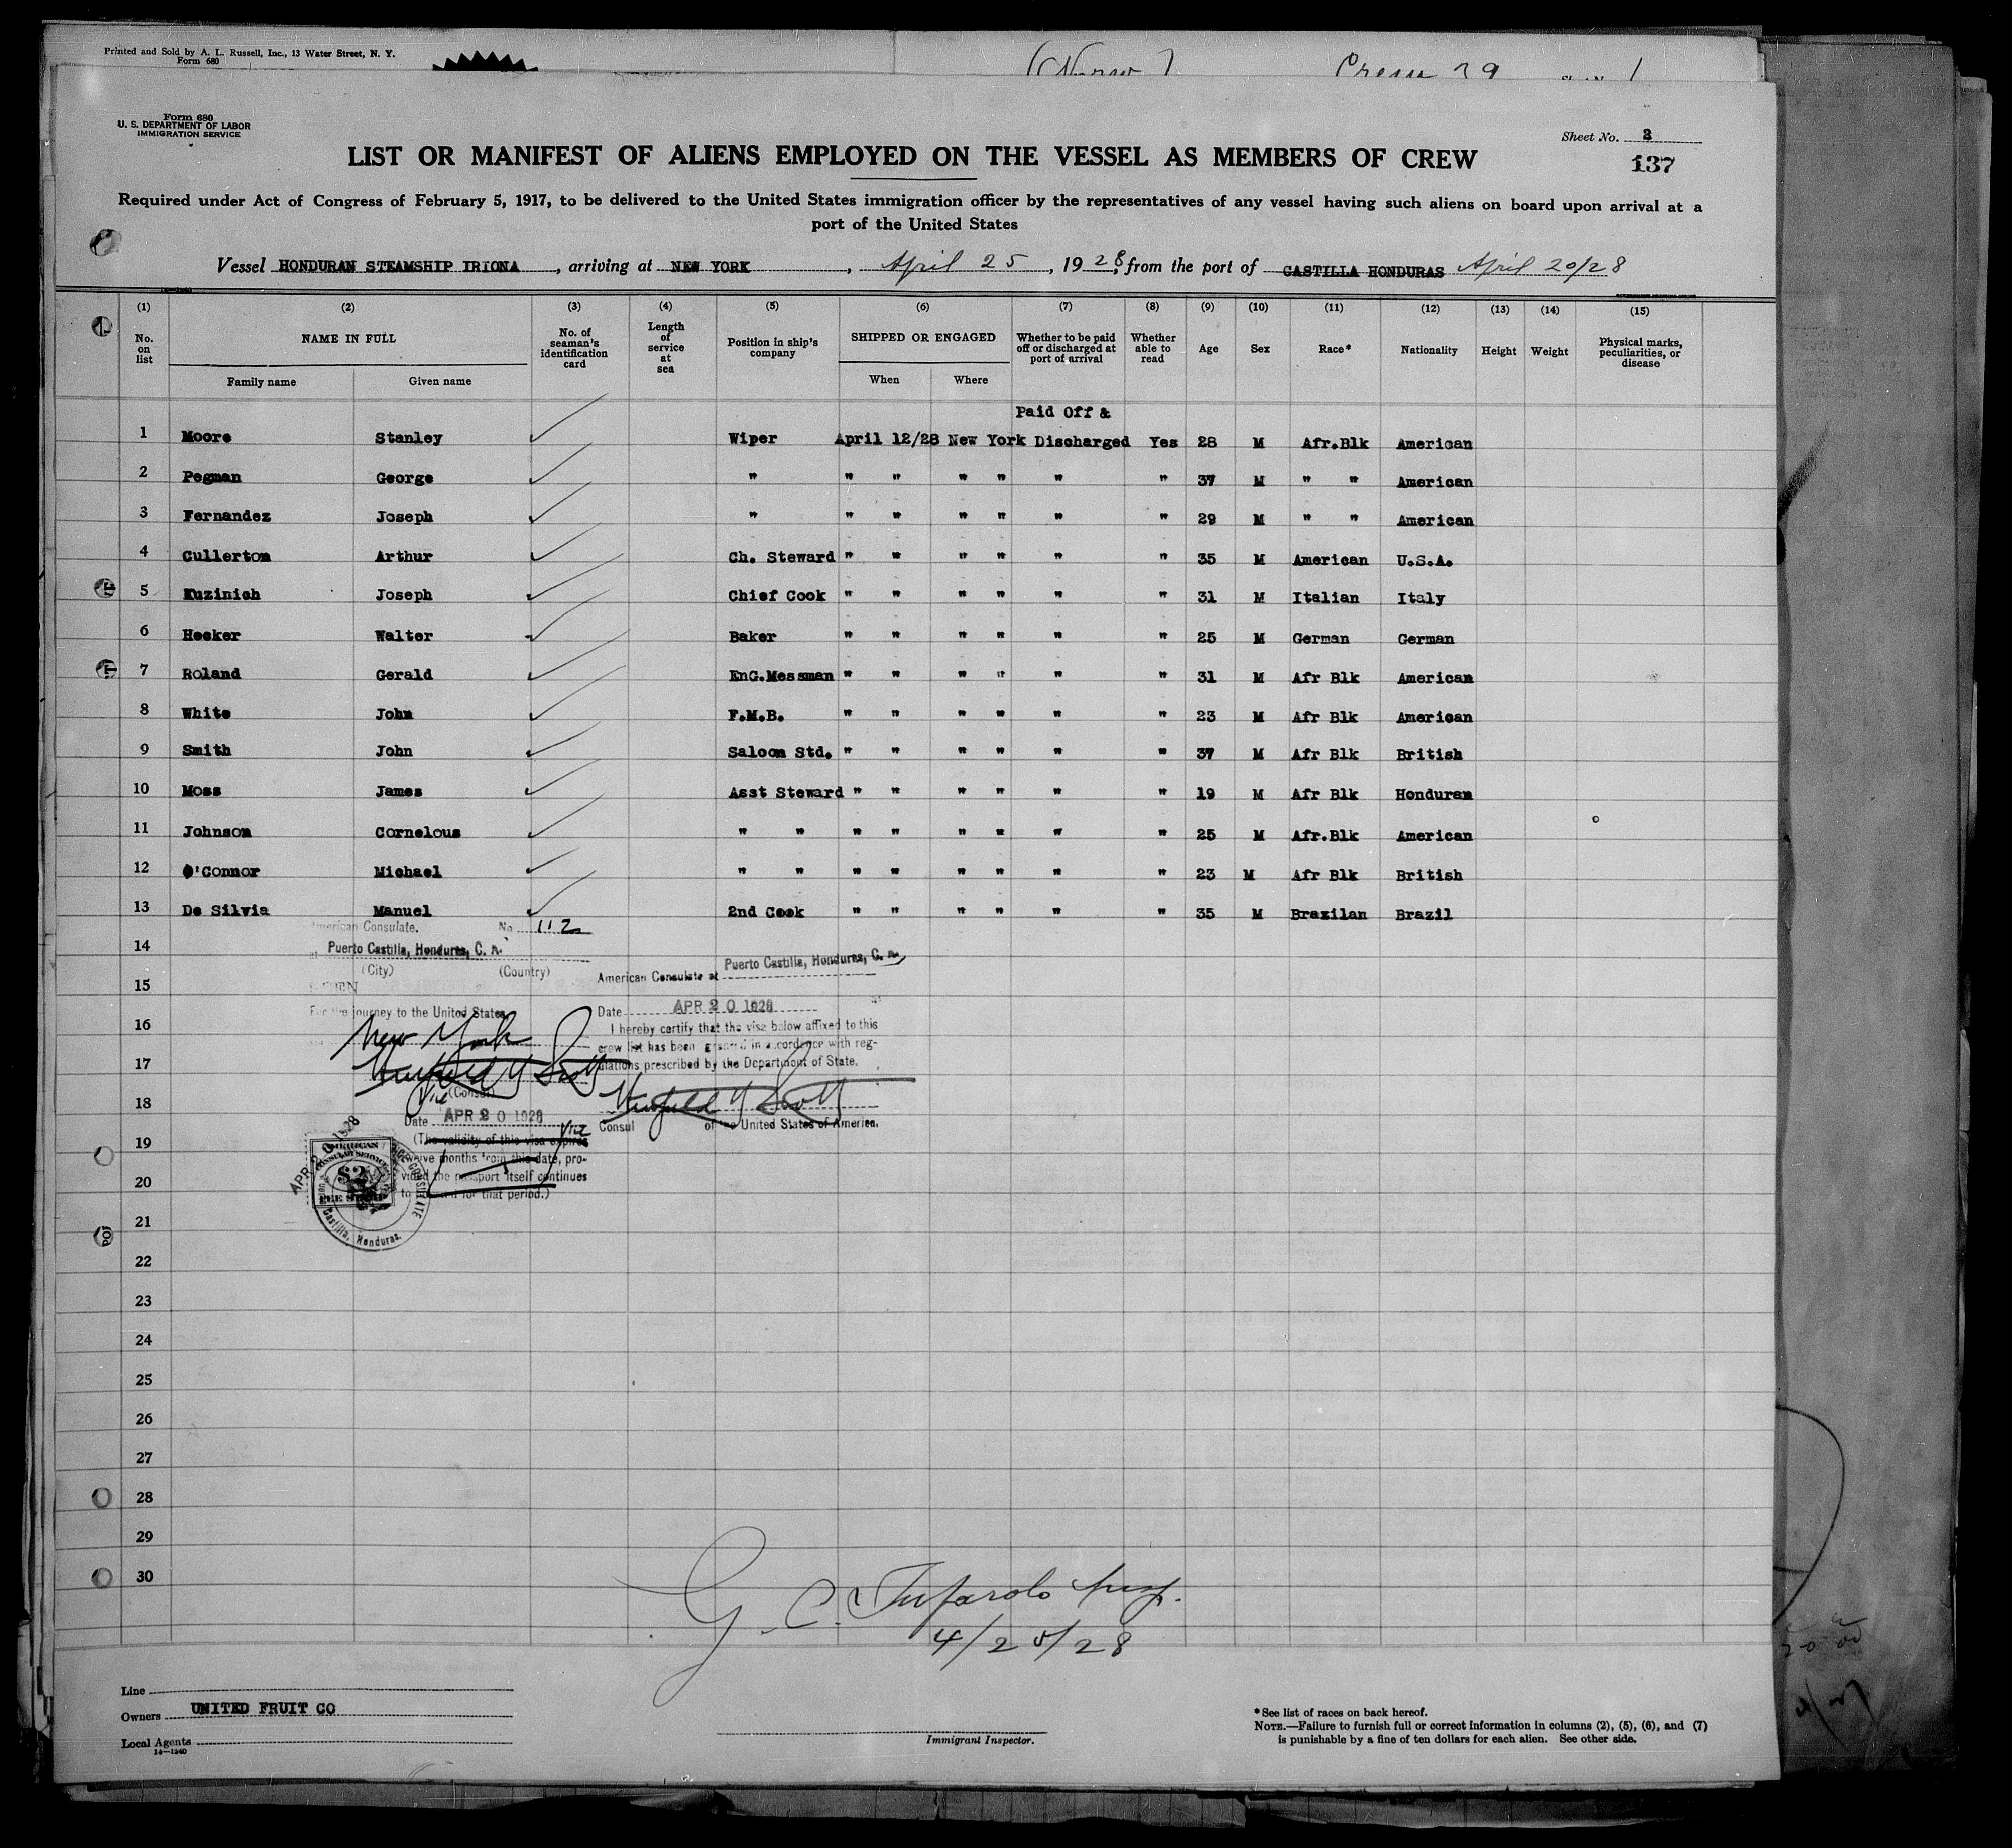 Printed and Sold by A. L. Russell, Inc., 13 Water Street, N. Y.
Form 680
Crew 29
1
Form 680
U. S. DEPARTMENT OF LABOR
IMMIGRATION SERVICE
Sheet No. 3
137
LIST OR MANIFEST OF ALIENS EMPLOYED ON THE VESSEL AS MEMBERS OF CREW
Required under Act of Congress of February 5, 1917, to be delivered to the United States immigration officer by the representatives of any vessel having such aliens on board upon arrival at a
port of the United States
Vessel HONDURAN STEAMSHIP IRIONA, arriving at NEW YORK, April 25, 1928, from the port of CASTILLA HONDURAS April 20/28
(1) (2) (3) (4) (5) (6) (7) (8) (9) (10) (11) (12) (13) (14) (15)
No. on list NAME IN FULL Family name Given name No. of seaman's identification card Length of service at sea Position in ship's company SHIPPED OR ENGAGED When Where Whether to be paid off or discharged at port of arrival Whether able to read Age Sex Race* Nationality Height Weight Physical marks, peculiarities, or disease
Paid Off &
1 Moore Stanley Wiper April 12/28 New York Discharged Yes 28 M Afr.Blk American
2 Pegman George " " " " " " " 37 M " " American
3 Fernandez Joseph " " " " " " " 29 M " " American
4 Cullerton Arthur Ch. Steward " " " " " " 35 M American U.S.A.
5 Kuzinich Joseph Chief Cook " " " " " " 31 M Italian Italy
6 Hecker Walter Baker " " " " " " 25 M German German
7 Roland Gerald EnG.Messman " " " " " " 31 M Afr Blk American
8 White John F.M.B. " " " " " " 23 M Afr Blk American
9 Smith John Saloon Std. " " " " " " 37 M Afr Blk British
10 Moss James Asst Steward " " " " " " 19 M Afr Blk Honduran
11 Johnson Cornelous " " " " " " " " 25 M Afr.Blk American
12 O'Connor Michael " " " " " " " " 23 M Afr Blk British
13 De Silvia Manuel 2nd Cook " " " " " " 35 M Brazilan Brazil
American Consulate. No. 112
14
Puerto Castilla, Honduras, C. A.
(City) (Country)
American Consulate at Puerto Castilla, Honduras, C. A.
15
For the journey to the United States
New York
Date APR 20 1928
16
I hereby certify that the visa below affixed to this
crew list has been granted in accordance with reg-
17
ulations prescribed by the Department of State.
(Consul)
Vice
18
Date APR 20 1928
Vice
Consul of the United States of America.
19
(The validity of this visa expires
twelve months from this date, pro-
20
vided the passport itself continues
to be valid for that period.)
APR 20 1928
AMERICAN
CONSULAR SERVICE
$2
FEE STAMP
Castilla, Honduras.
21
22
23
24
25
26
27
28
29
30
4/25/28
Line
Owners UNITED FRUIT CO
Local Agents
14—1240
Immigrant Inspector.
*See list of races on back hereof.
NOTE.—Failure to furnish full or correct information in columns (2), (5), (6), and (7)
is punishable by a fine of ten dollars for each alien. See other side.